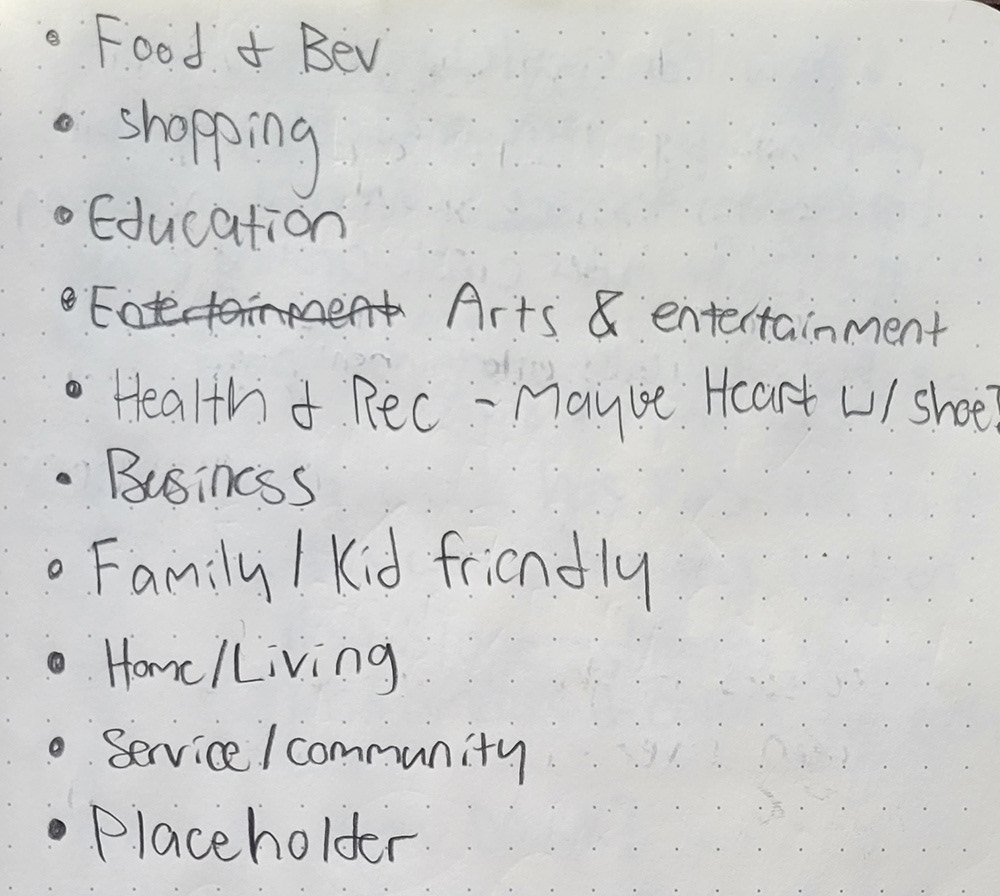 • Food & Bev
• Shopping
• Education
• Entertainment Arts & entertainment
• Health & Rec - Maybe Heart w/ shoe?
• Business
• Family / Kid friendly
• Home/Living
• Service/community
• Placeholder